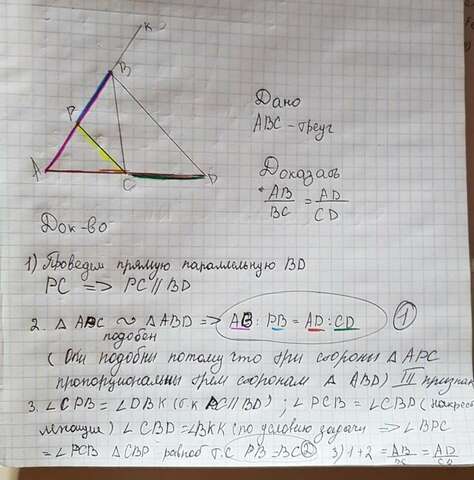 K
B
P
A
C
D
Дано
ABC - треуг
Доказать
AB/BC = AD/CD
Док-во
1) Проведем прямую параллельную BD
PC => PC || BD
2. △ APC ~ △ ABD => AB : PB = AD : CD 1
подобен
(Они подобны потому что три стороны △ APC
пропорциональны трем сторонам △ ABD) III признак
3. ∠CPB = ∠DBK (т.к PC || BD) ; ∠PCB = ∠CBD (накрест
лежащие) ∠CBD = ∠DBK (по условию задачи => ∠BPC
= ∠PCB △CBP равноб т.е PB = BC 2 3) 1+2 = AB/BC = AD/CD